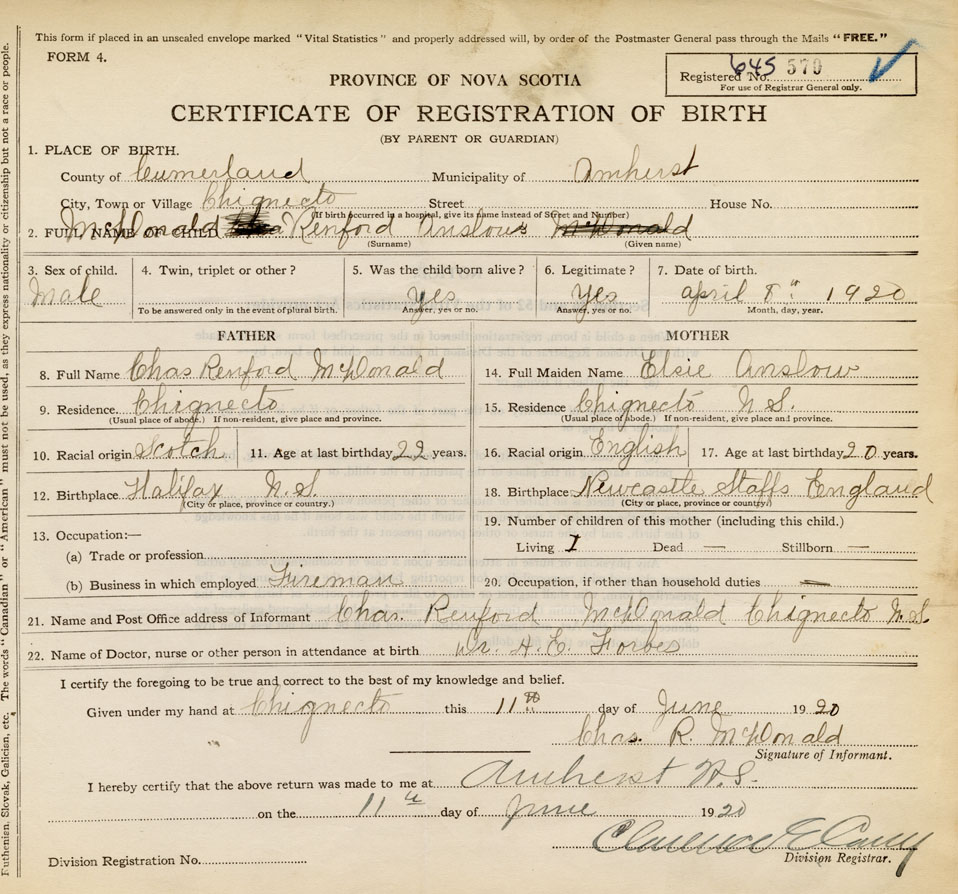 This form if placed in an unsealed envelope marked "Vital Statistics" and properly addressed will, by order of the Postmaster General pass through the Mails "FREE."
FORM 4.
Registered No. 645 570
For use of Registrar General only.
PROVINCE OF NOVA SCOTIA
CERTIFICATE OF REGISTRATION OF BIRTH
(BY PARENT OR GUARDIAN)
1. PLACE OF BIRTH.
County of Cumerland Municipality of Amherst
City, Town or Village Chignecto Street House No.
(If birth occurred in a hospital, give its name instead of Street and Number)
2. FULL NAME OF CHILD McDonald Renford Anslow McDonald
(Surname) (Given name)
3. Sex of child. 4. Twin, triplet or other? 5. Was the child born alive? 6. Legitimate? 7. Date of birth.
Male Yes Yes April 8th 1920
To be answered only in the event of plural birth. Answer, yes or no. Answer, yes or no. Month, day, year.
FATHER MOTHER
8. Full Name Chas Renford McDonald 14. Full Maiden Name Elsie Anslow
9. Residence Chignecto 15. Residence Chignecto N.S.
(Usual place of abode.) If non-resident, give place and province. (Usual place of abode.) If non-resident, give place and province.
10. Racial origin Scotch 11. Age at last birthday 22 years. 16. Racial origin English 17. Age at last birthday 20 years.
12. Birthplace Halifax N.S. 18. Birthplace Newcastle Staffs England
(City or place, province or country.) (City or place, province or country.)
13. Occupation:— 19. Number of children of this mother (including this child.)
(a) Trade or profession Living 1 Dead — Stillborn —
(b) Business in which employed Fireman 20. Occupation, if other than household duties —
21. Name and Post Office address of Informant Chas. Renford McDonald Chignecto N.S.
22. Name of Doctor, nurse or other person in attendance at birth Dr. H.E. Forbes
I certify the foregoing to be true and correct to the best of my knowledge and belief.
Given under my hand at Chignecto this 11th day of June 1920
Chas. R. McDonald
Signature of Informant.
I hereby certify that the above return was made to me at Amherst N.S.
on the 11th day of June 1920
Clarence E
Division Registration No. Division Registrar.
Ruthenian, Slovak, Galician, etc. The words "Canadian" or "American" must not be used, as they express nationality or citizenship but not a race or people.